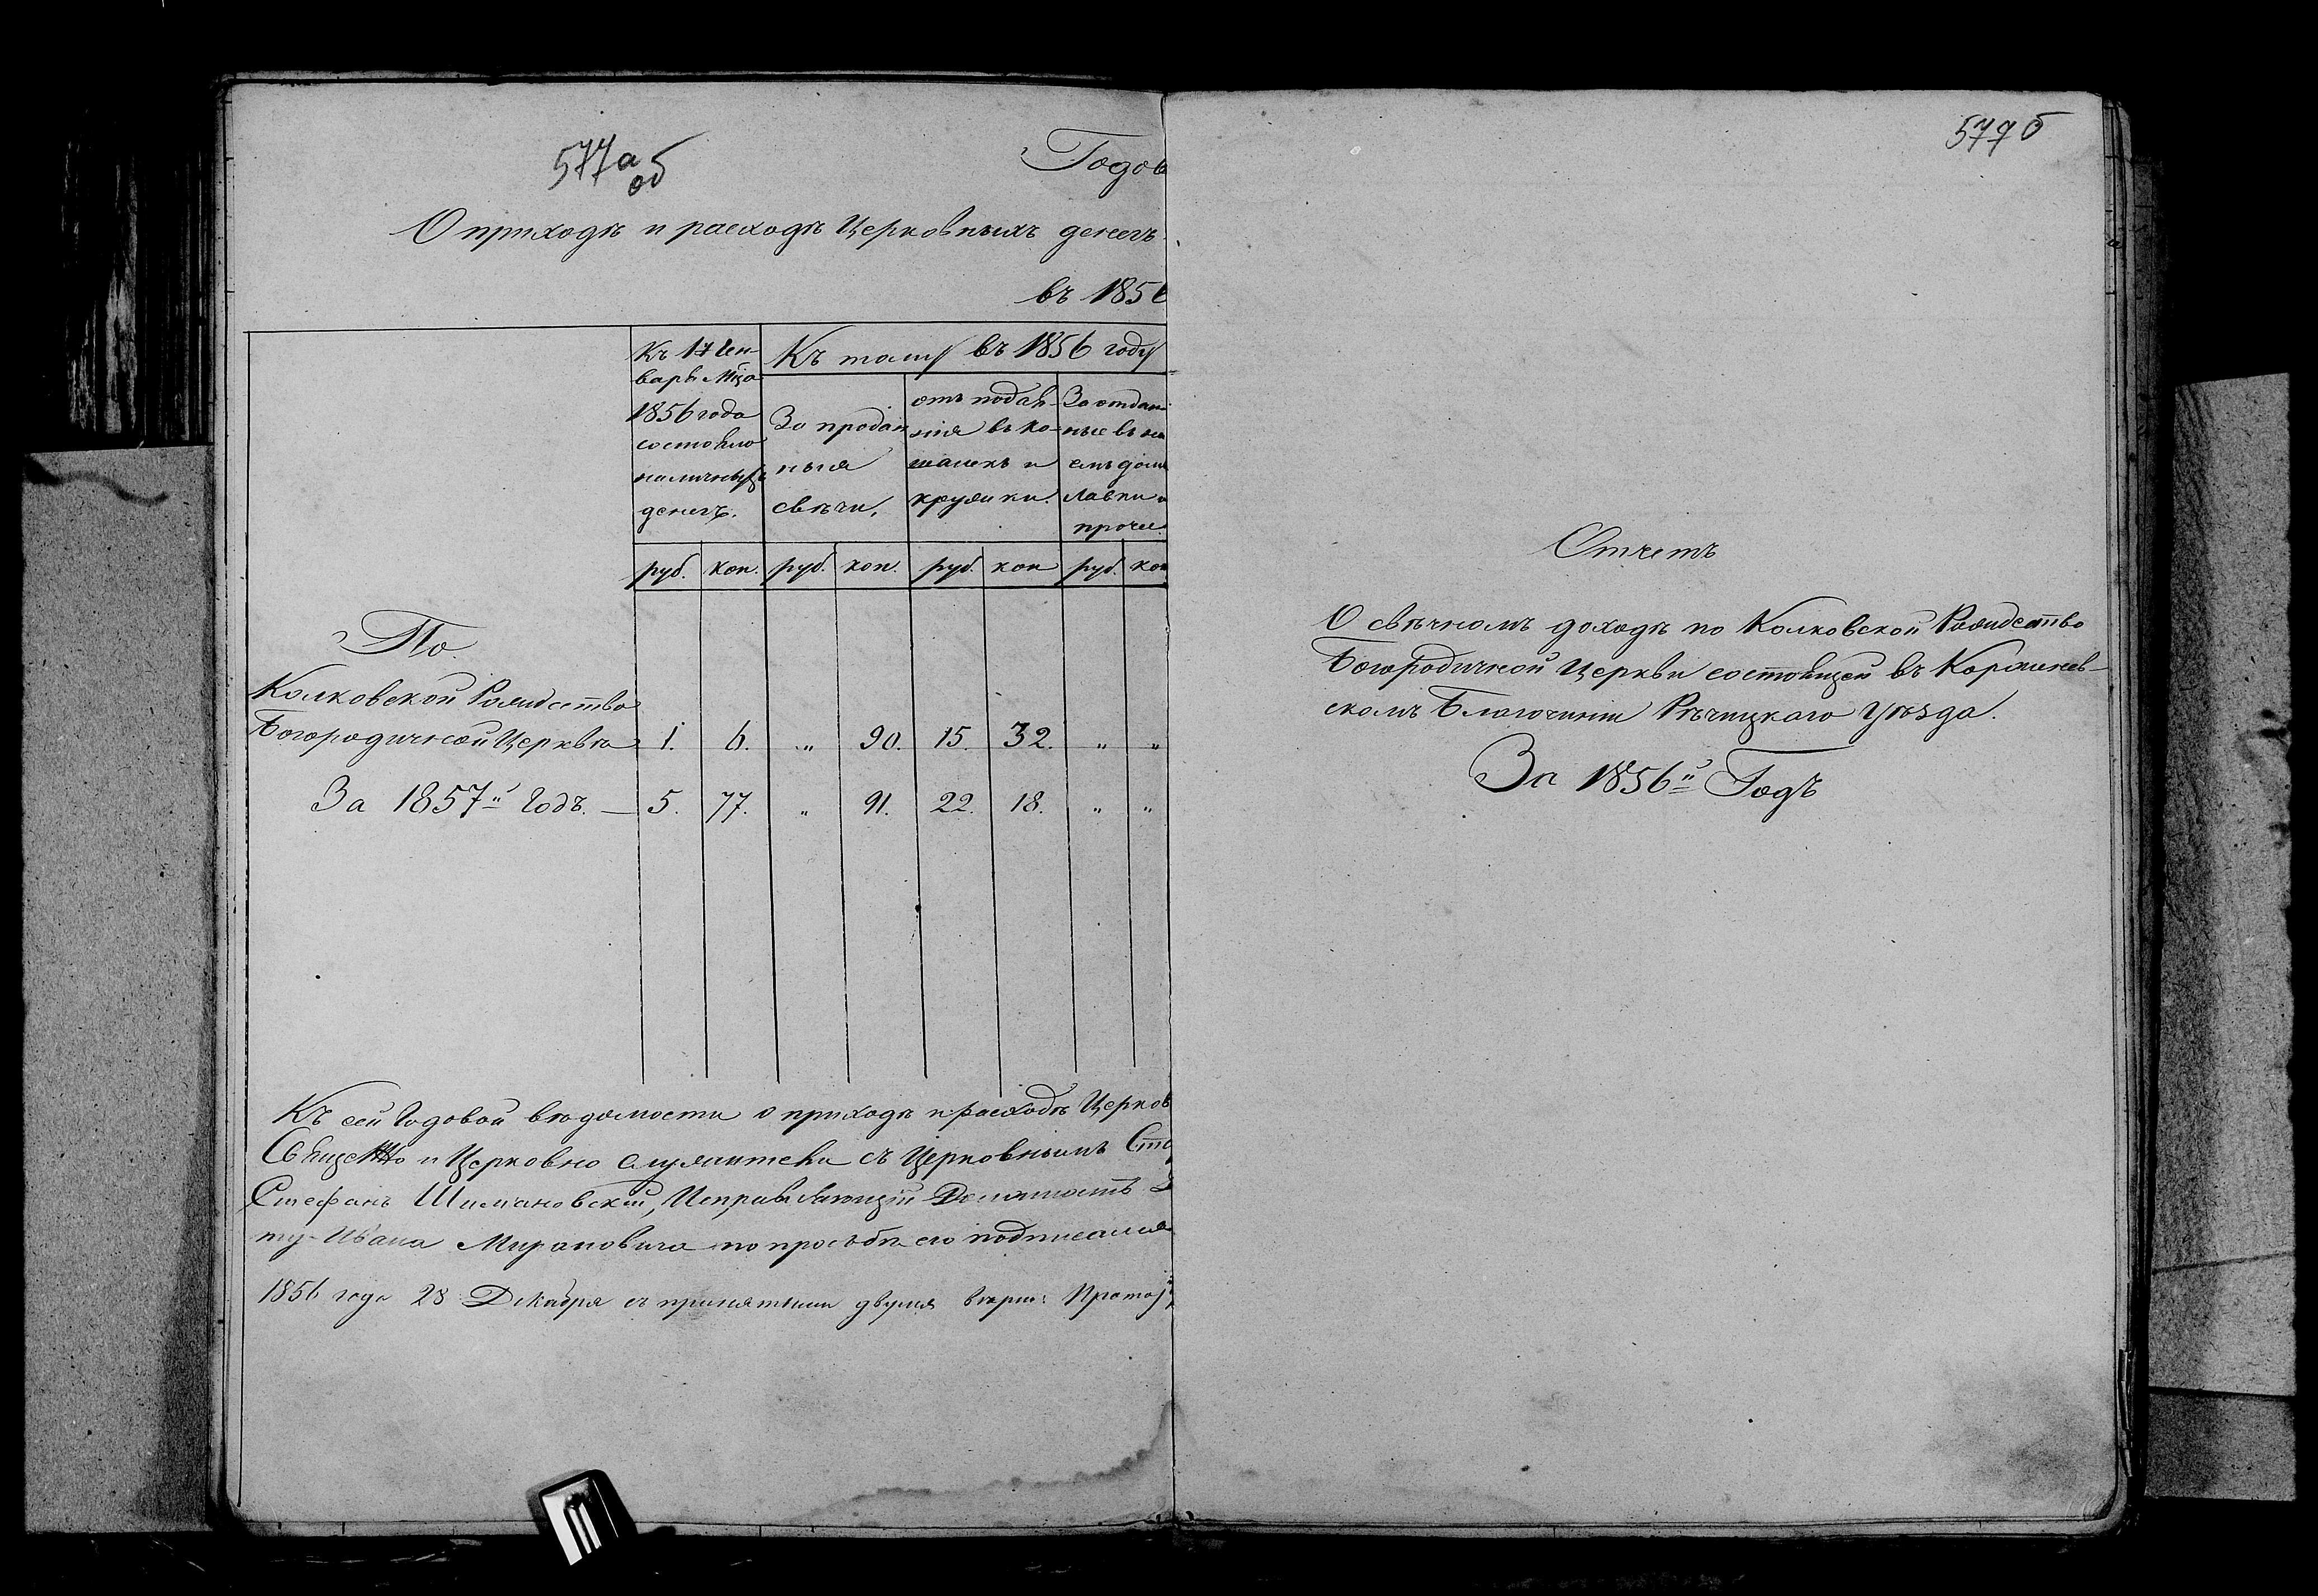 577а
об
Годов
О приходѣ и расходѣ Церковныхъ денегъ
въ 1856
Къ 1 Ген-
варя Мца
1856 года
состояло
наличныхъ
денегъ.
Къ тому въ 1856 году
За продан
ныя
свѣчи.
отъ подая-
нія въ ко-
шалекъ и
кружки.
За отдан
ные въ на
емъ домы
Лавки и
прочее
руб. коп. руб. коп. руб. коп руб. коп
По
Колковской Рождество
Богородичной Церквѣ 1. 6. „ 90. 15. 32. „ „
За 1857й Годъ. — 5. 77. „ 91. 22. 18. „ „
Къ сей Годовой вѣдомости о приходѣ и расходѣ Церков
Священно и Церковно служители съ Церковнымъ Ста
Стефанъ Шимановскій, Исправляющій Должность
ту Ивана Мирановича по просьбѣ его подписался
1856 года 28 Декабря съ принятыми двумя вѣрно: Протоі
577б
Отчетъ
О свѣчномъ доходѣ по Колковской Рождество
Богородичной Церкви состоящей въ Коржнев-
скомъ Благочиніи Рѣчицкаго Уѣзда.
За 1856й Годъ